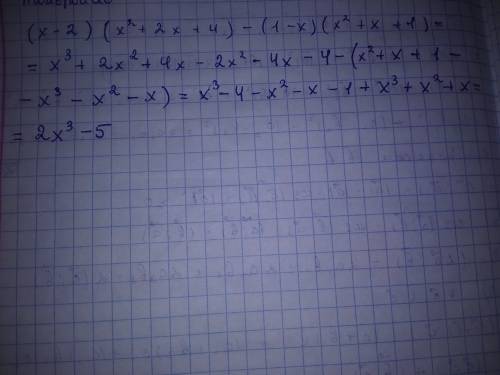 (x - 2) (x² + 2x + 4) - (1 - x) (x² + x + 1) =
= x³ + 2x² + 4x - 2x² - 4x - 4 - (x² + x + 1 -
- x³ - x² - x) = x³ - 4 - x² - x - 1 + x³ + x² + x =
= 2x³ - 5